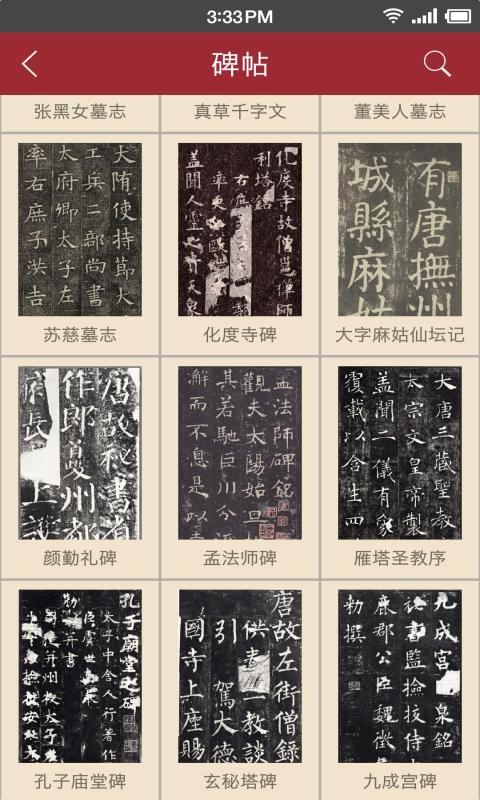 3:33PM
碑帖
张黑女墓志
真草千字文
董美人墓志
大隋使持節大
工兵二部尚書
太府卿太子左
率右庶子洪吉
苏慈墓志
化度寺故僧邕禪師
利塔銘
右庶
率更
蓋聞人靈之貴天象
化度寺碑
有唐撫州
城縣麻姑
大字麻姑仙坛记
唐故秘書省
作郎夔州都
长上護
颜勤礼碑
孟法師碑銘
觀夫太陽始旦
其若馳巨川分
辦而不息是以
孟法师碑
大唐三藏聖教
太宗文皇帝製
蓋聞二儀有象
覆載以含生四
雁塔圣教序
孔子廟堂之碑
太子中舍人行著作
臣虞世南
勅并書
孔子庙堂碑
唐故左街僧錄
供奉三教談
引駕大德
國寺上座賜
玄秘塔碑
九成宮 泉銘
秘書監撿挍侍
鹿郡公臣魏徵
勑撰
九成宫碑